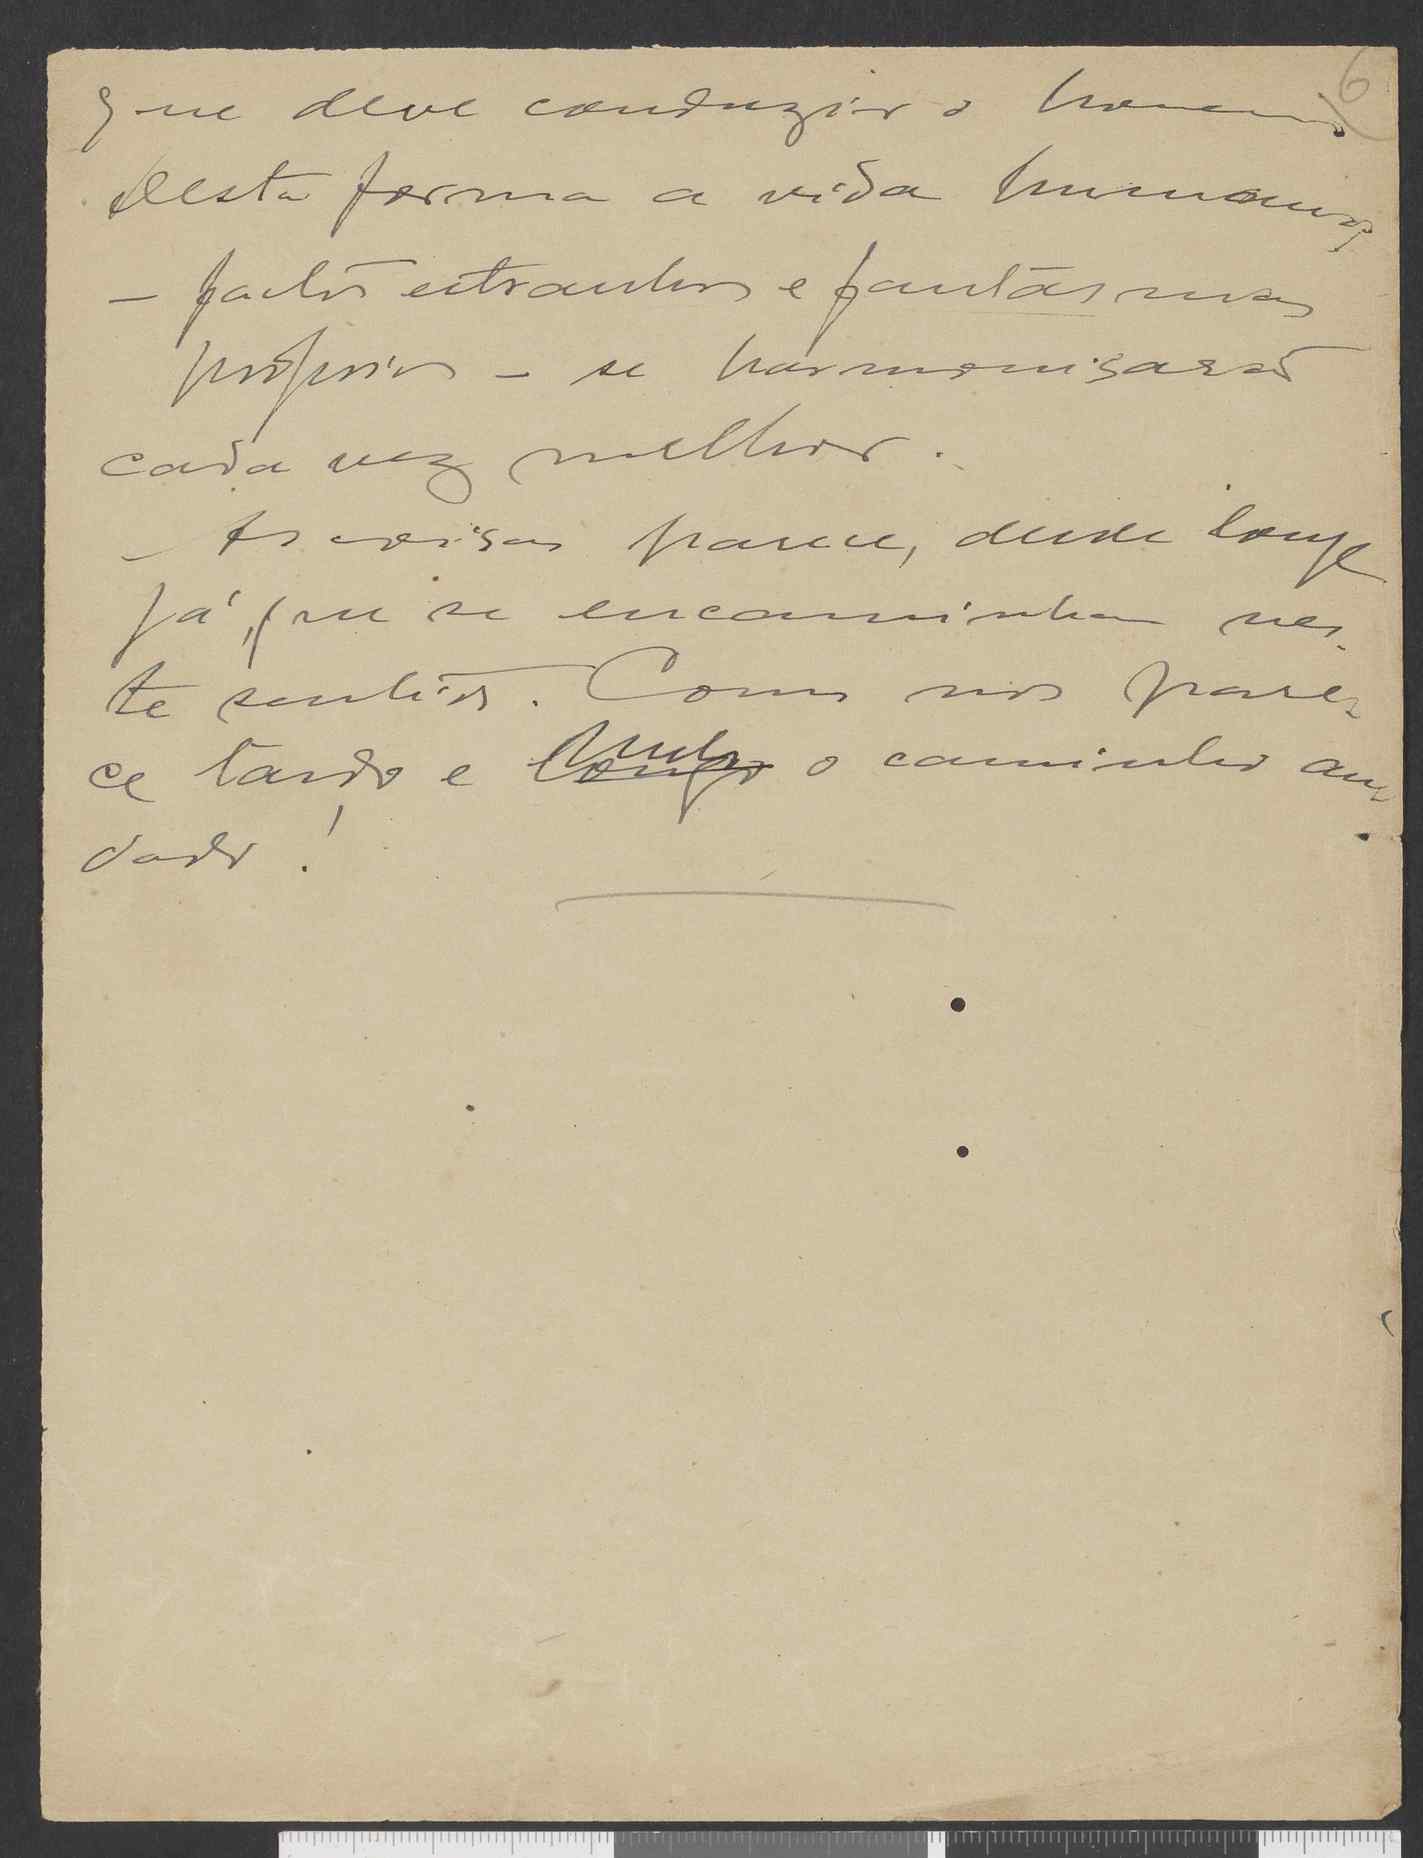 6
que deve conduzir o homem.
Desta forma a vida humana,
— factos estranhos e fantásmas
proprios — se harmonisarão
cada vez melhor.
— As coisas parece, desde longe
já, que se encaminham nes-
te sentido. Como nos pare-
ce tardo e longo o caminho an-
dado!